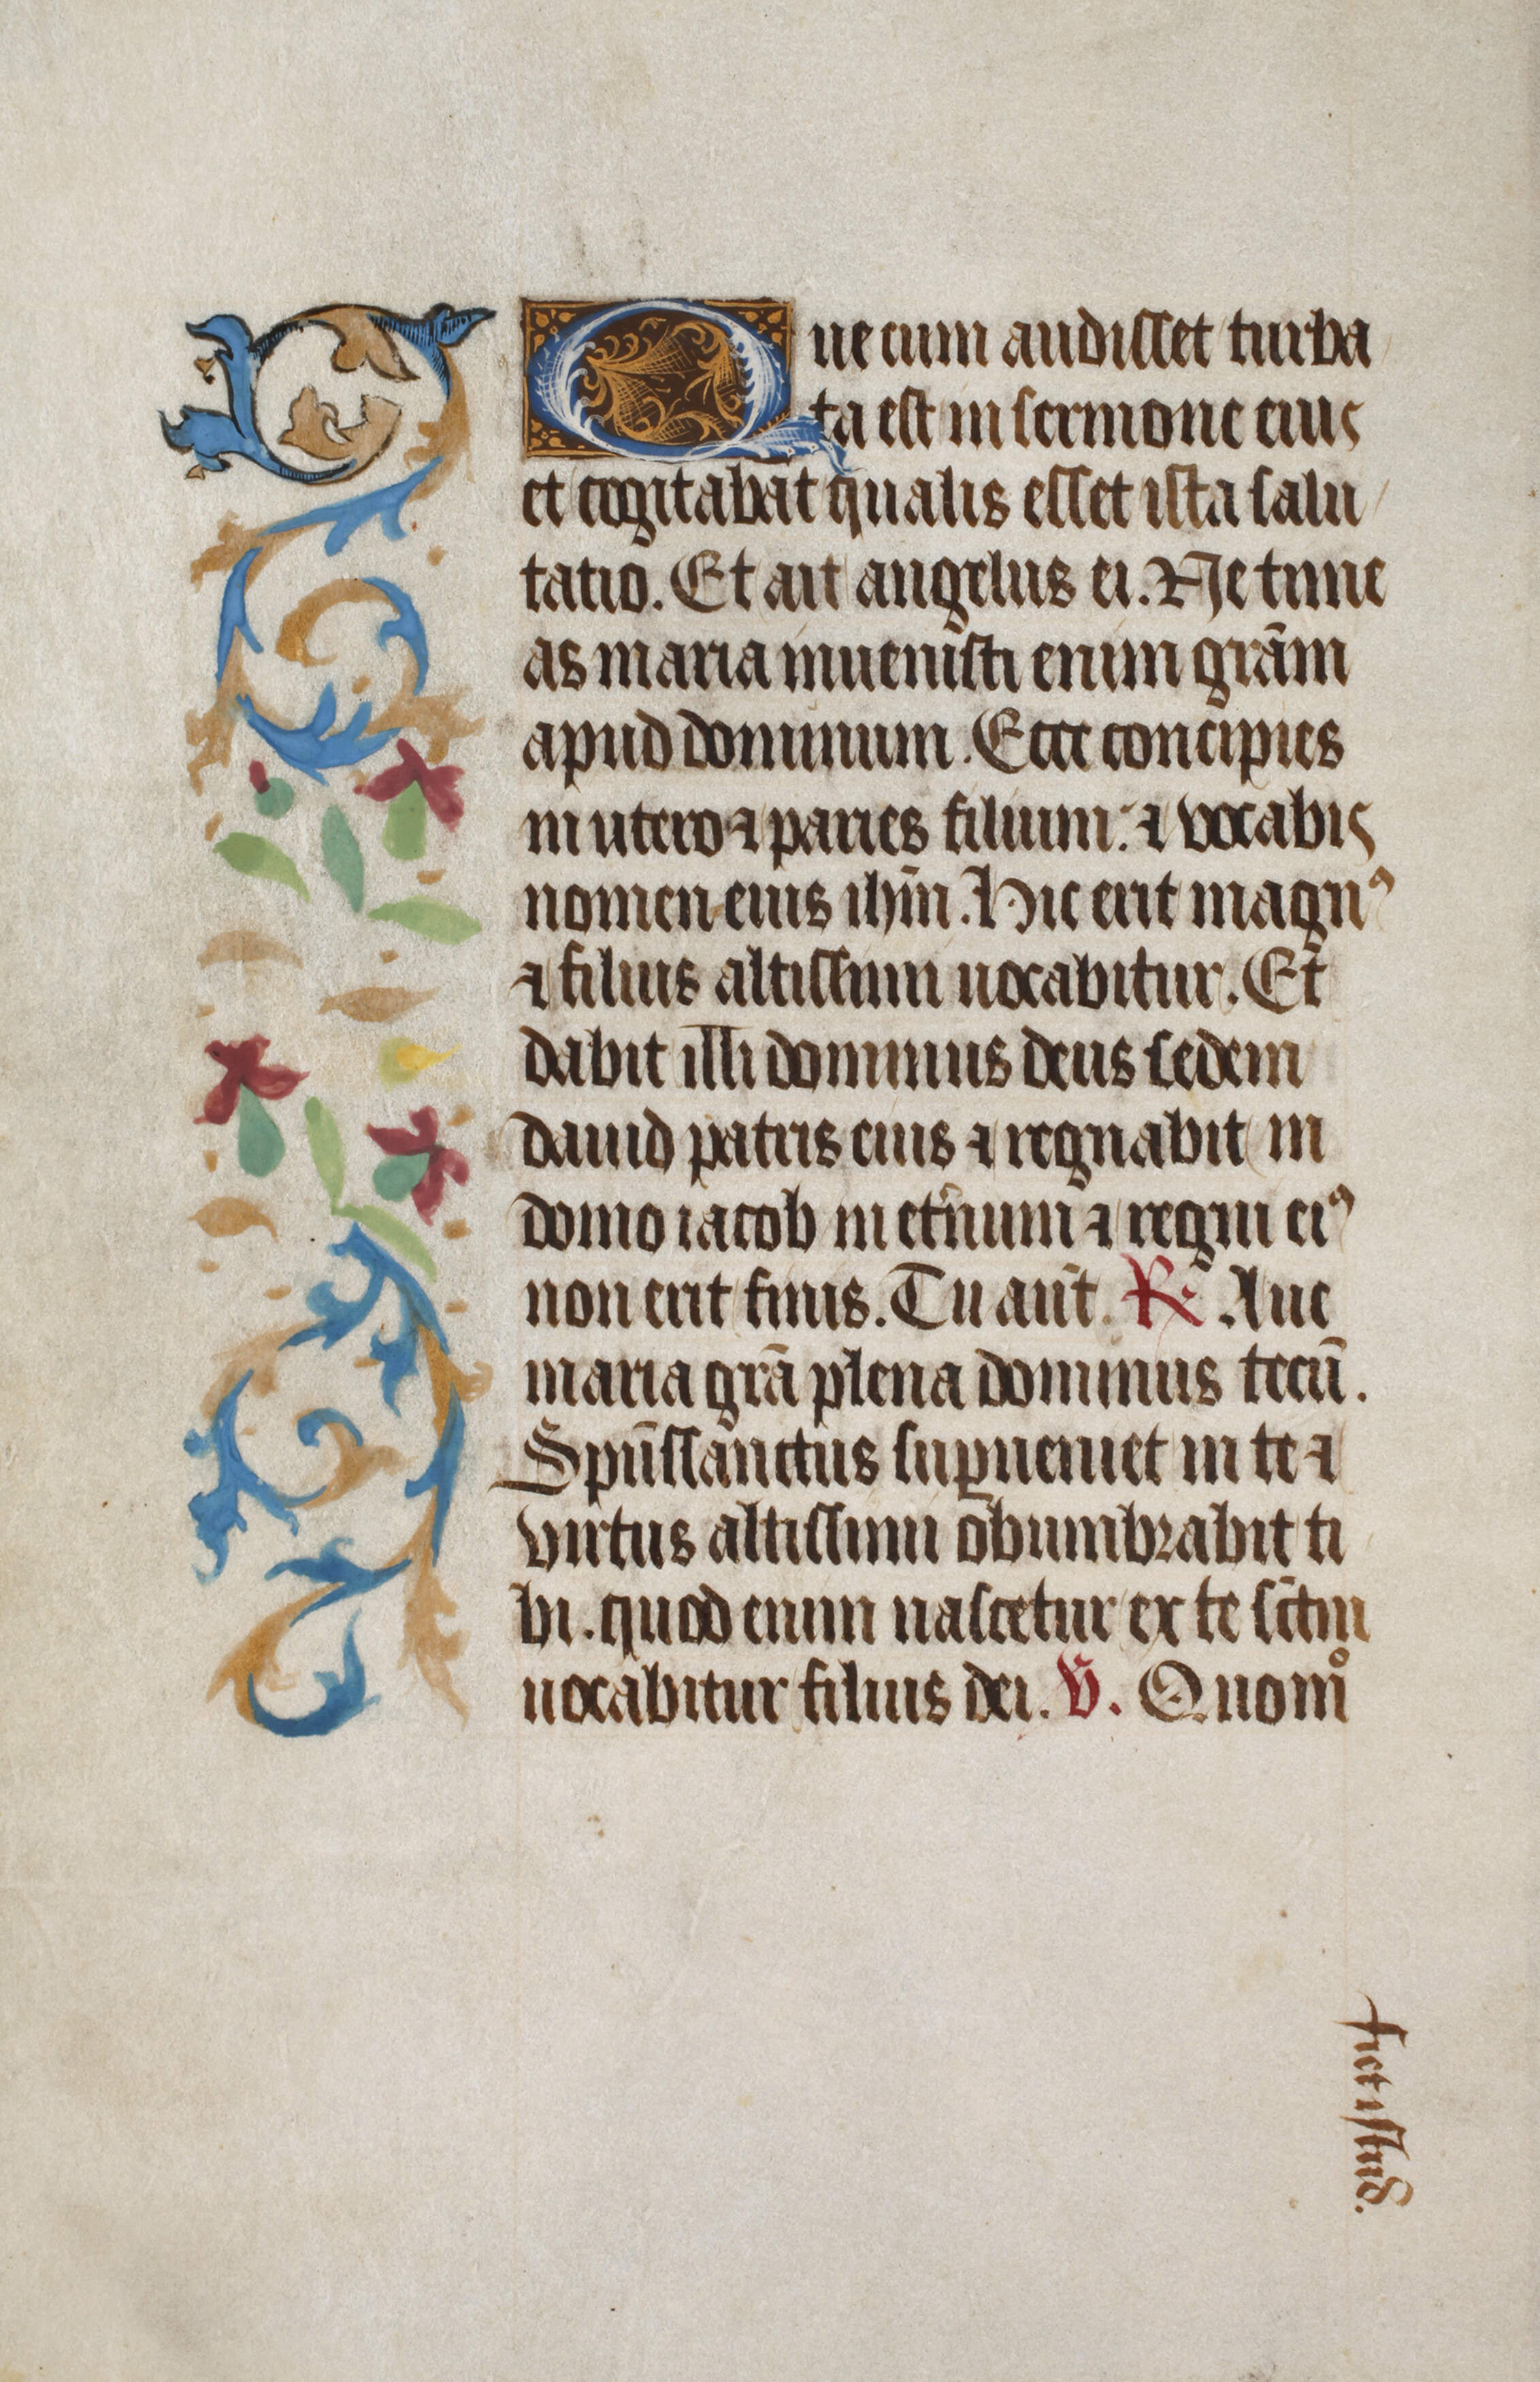 Que cum audisset turba
ta est in sermone eius
et cogitabat qualis esset ista salu
tatio. Et ait angelus ei. Ne time
as maria inuenisti enim grām
apud dominum. Ecce concipies
in utero ⁊ paries filium: ⁊ vocabis
nomen eius ihm̄. Hic erit magnꝰ
⁊ filius altissimi uocabitur. Et
dabit illi dominus deus sedem
dauid patris eius ⁊ regnabit in
domo iacob in et̄num ⁊ regni eiꝰ
non erit finis. Tu aūt. ℟. Aue
maria grā plena dominus tecū.
Spūssanctus suꝑueniet in te ⁊
virtus altissimi obumbrabit ti
bi. quod enim nascetur ex te sc̄tm
uocabitur filius dei. ℣. Quomͦ
fiet istud.